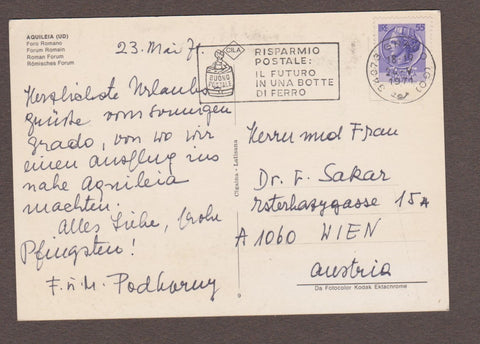 AQUILEIA (UD)
Foro Romano
Forum Romain
Roman Forum
Römisches Forum
23. Mai 71.
CILA
BUONO POSTALE
RISPARMIO
POSTALE:
IL FUTURO
IN UNA BOTTE
DI FERRO
55
1971
Herzlichste Urlaubs
grüße vom sonnigen
Grado, von wo wir
einen Ausflug ins
nahe Aquileia
machten.
Alles Liebe, frohe
Pfingsten!
F. u. M. Podhorny
Olguina - Latisana
Herrn und Frau
Dr. F. Sakar
Esterhazygasse 15A
A 1060 WIEN
Austria
9
Da Fotocolor Kodak Ektachrome